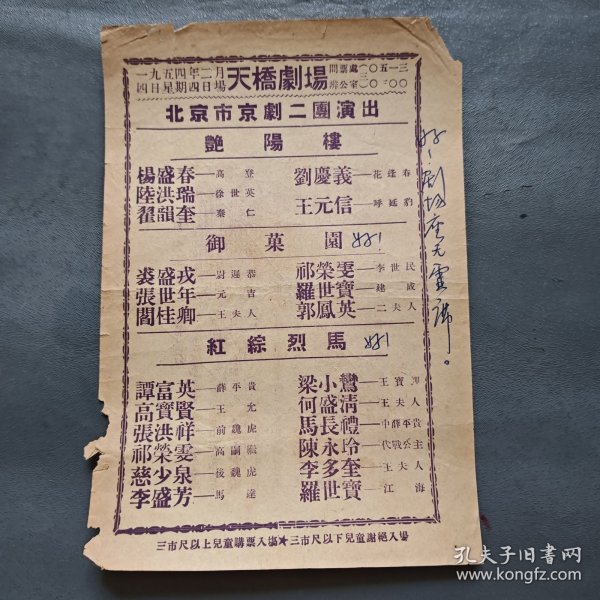 一九五四年二月
四日星期四日場
天橋劇場
問票處
辦公室
北京市京劇二團演出
艷陽樓
楊盛春—高登 劉慶義—花逢春
陸洪瑞—徐世英
翟韻奎—秦仁 王元信—呼延豹
御菓園 好!
裘盛戎—尉遲恭 祁榮雯—李世民
張世年—元吉 羅世寶—建成
閻桂卿—王夫人 郭鳳英—二夫人
紅綜烈馬 好!
譚富英—薛平貴 梁小鸞—王寶釧
高寶賢—王允 何盛清—王夫人
張洪祥—前魏虎 馬長禮—中薛平貴
祁榮雯—高嗣繼 陳永玲—代戰公主
慈少泉—後魏虎 李多奎—王夫人
李盛芳—馬達 羅世寶—江海
三市尺以上兒童購票入場★三市尺以下兒童謝絕入場
好!劇場座无虛席。
孔夫子旧书网
www.kongfz.com